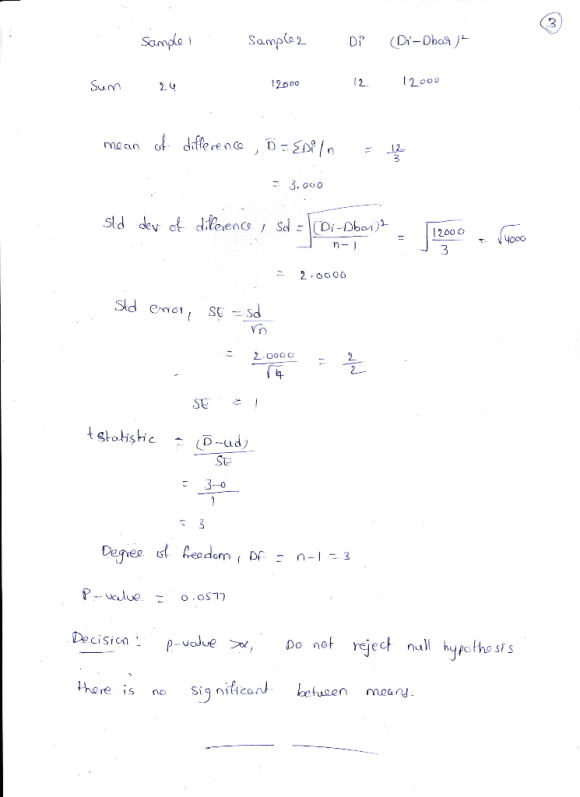 3
Sample 1 Sample 2 Di (Di-Dbar)²
Sum 24 12000 12 12000
mean of difference, D̄ = ΣDi/n = 12/3
= 3.000
Std dev of difference, Sd = √((Di-Dbar)²/n-1) = √(12000/3) = √4000
= 2.0000
Std error, SE = sd/√n
= 2.0000/√4 = 2/2
SE = 1
t statistic = (D̄-ud)/SE
= 3-0/1
= 3
Degree of freedom, DF = n-1 = 3
P-value = 0.0577
Decision: p-value >α, Do not reject null hypothesis
there is no significant between means.